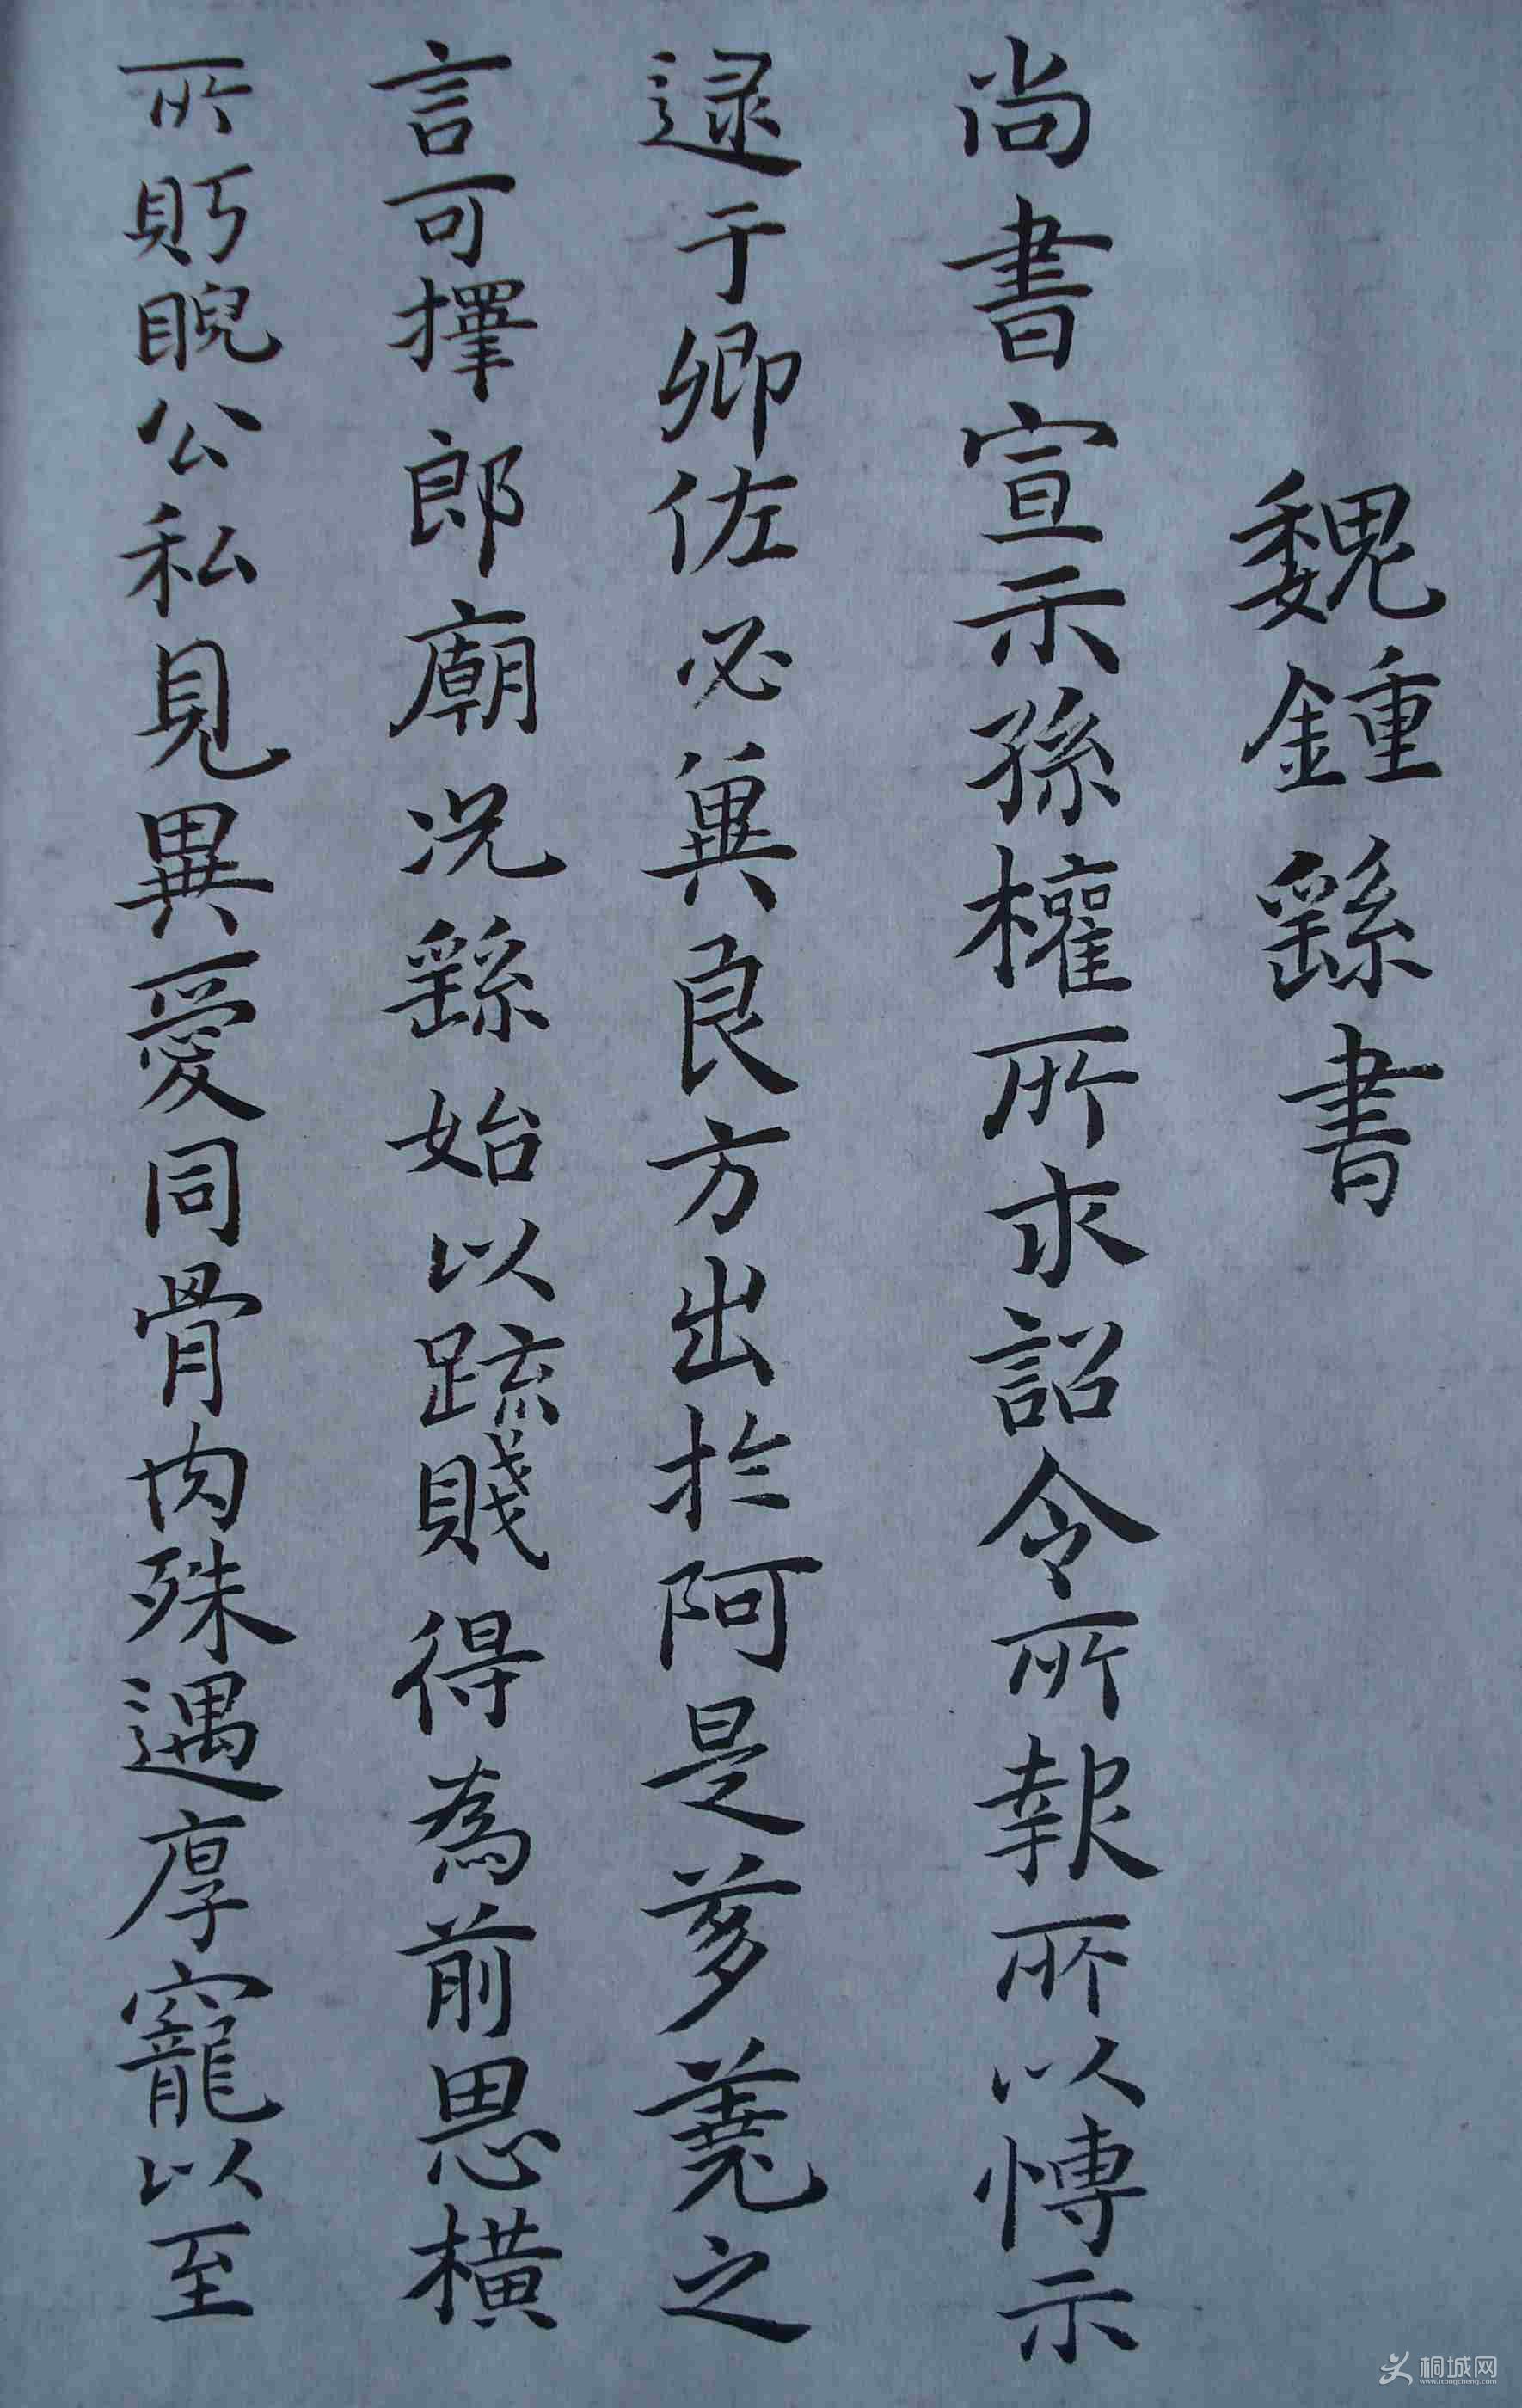 魏鍾繇書
尚書宣示孫權所求詔令所報所以博示
逮于卿佐必冀良方出於阿是芻蕘之
言可擇郎廟況繇始以疏賤得為前恩橫
所眄睨公私見異愛同骨肉殊遇厚寵以至
桐城網
www.itongcheng.com